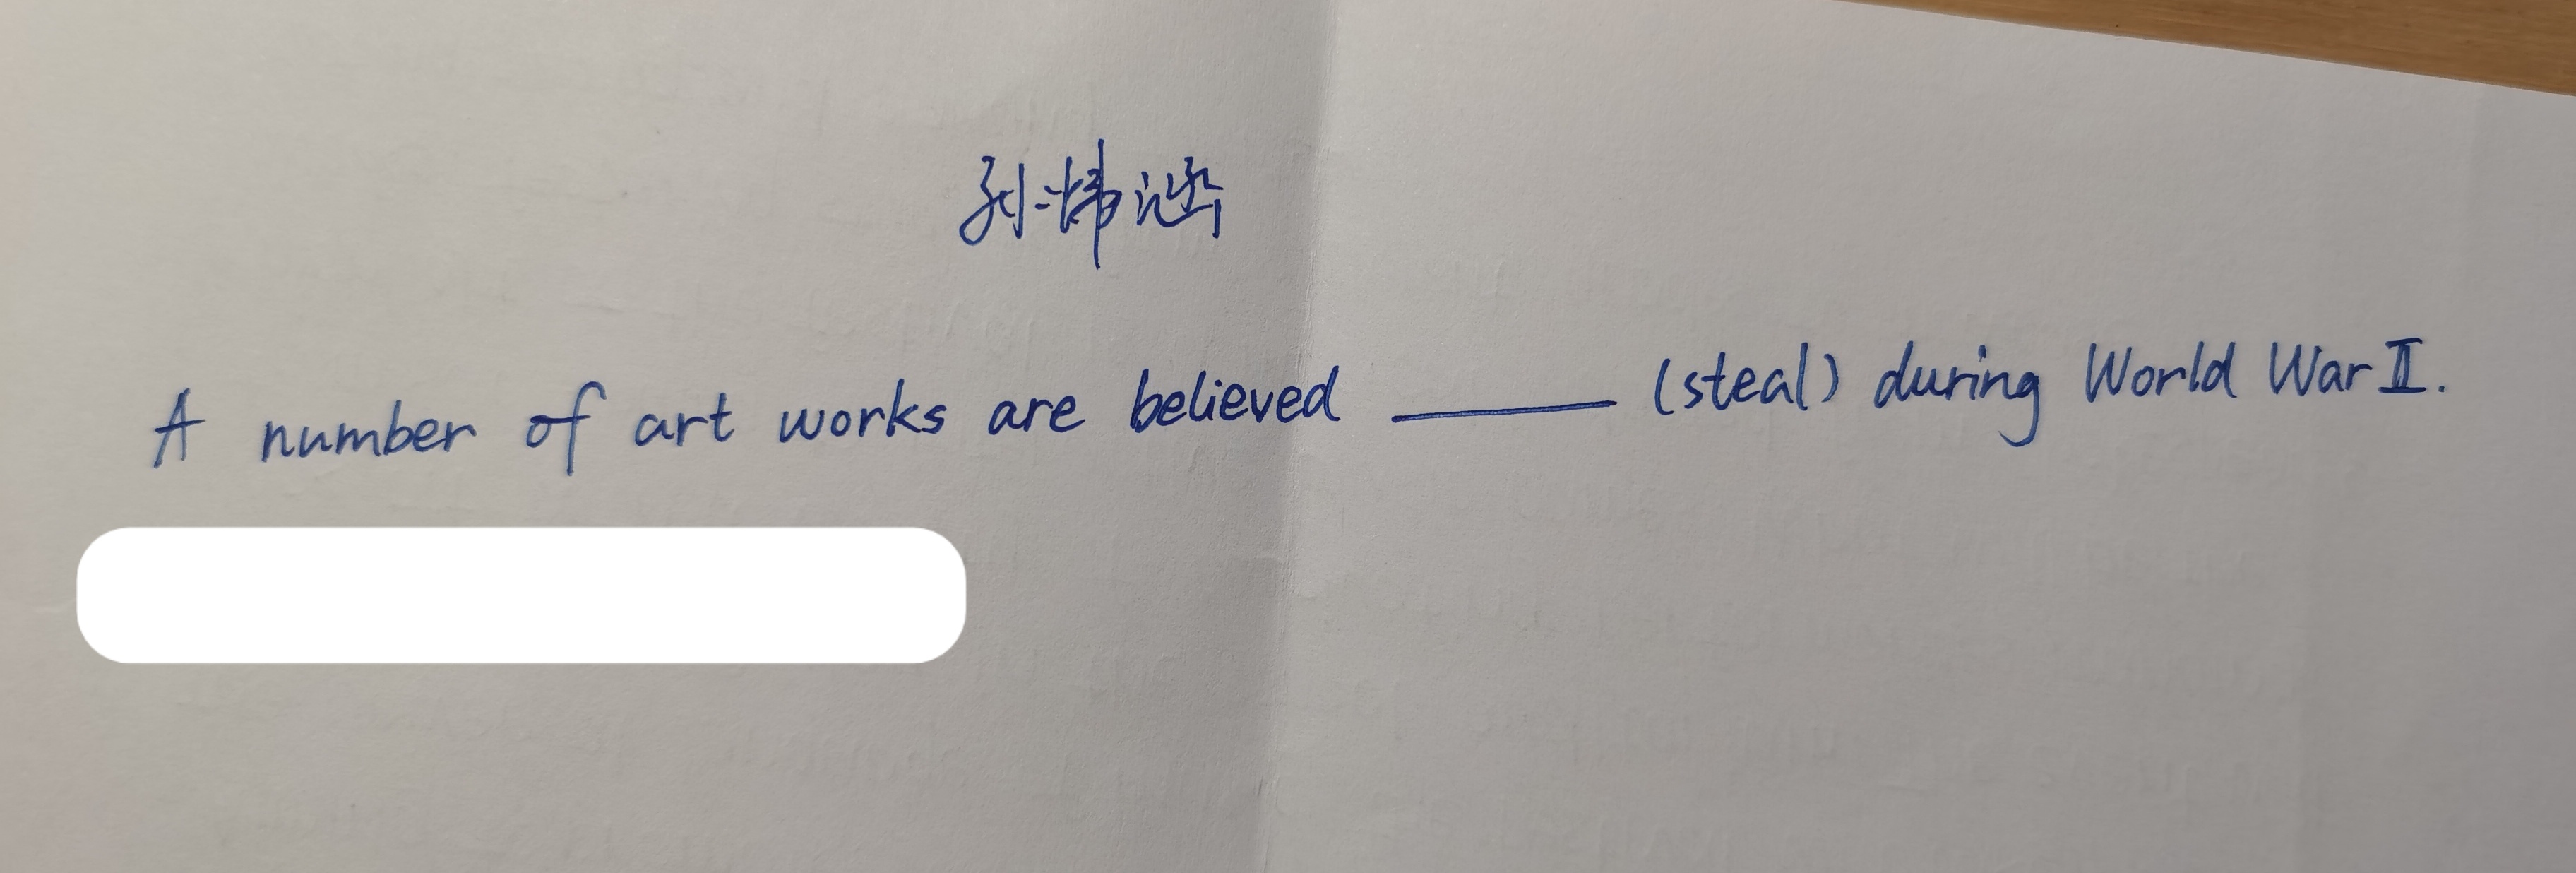 孙炜涵
A number of art works are believed ______ (steal) during World War II.